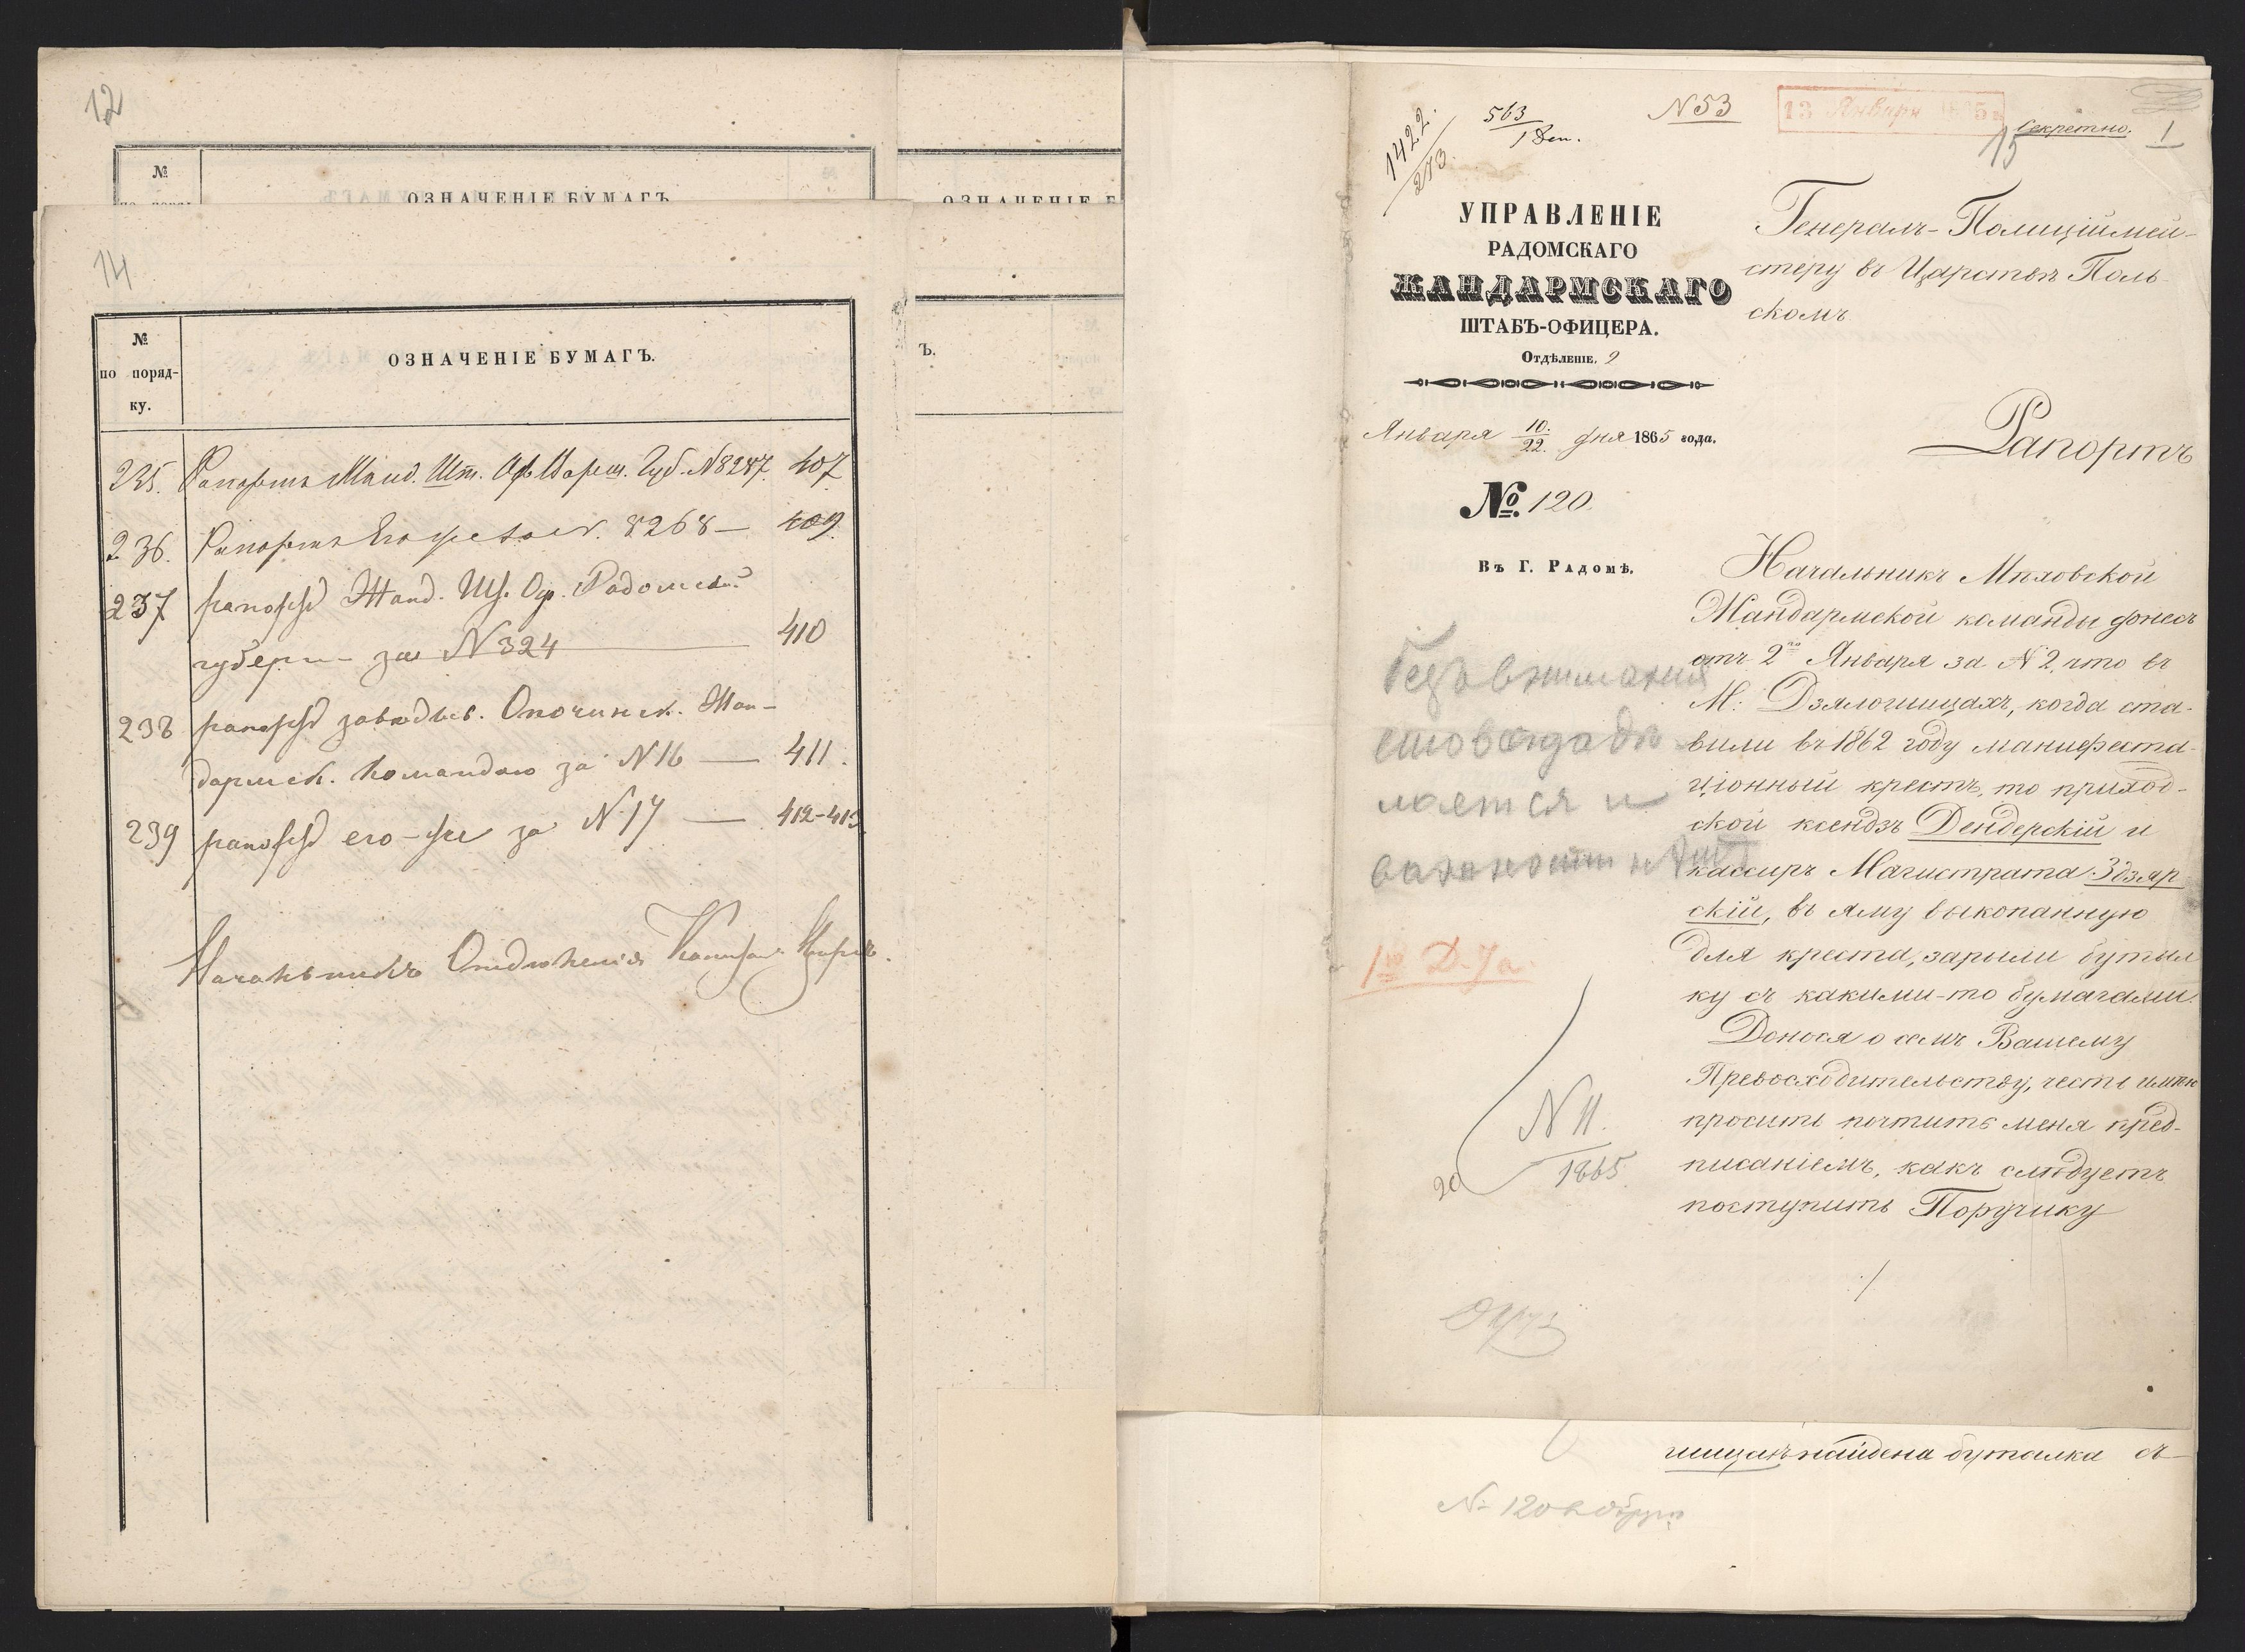 12
№
ОЗНАЧЕНІЕ БУМАГЪ
14
№
по поряд-
ку.
ОЗНАЧЕНІЕ БУМАГЪ.
Ъ.
235. Рапортъ Жанд. Шт. Оф. Варш. Губ. N 8247. 407
236. Рапортъ Его же за N. 8268 — 409.
237 рапортъ Жанд. Шт. Оф. Радомской
губерн— за N 324 — 410
238 рапортъ завѣдыв. Опочинск. Жан-
дармск. командою за N 16 — 411.
239 рапортъ его-же за N 17 — 412-413
Начальникъ Отдѣленія
1422.
273.
563
1 Ден.
N 53
13 Января
15
Секретно.
1
УПРАВЛЕНІЕ
РАДОМСКАГО
ЖАНДАРМСКАГО
ШТАБЪ-ОФИЦЕРА.
Отдѣленіе. 2
Января 10./22. дня 1865 года.
№. 120.
Въ Г. Радомѣ.
Генералъ-Полиціймей-
стеру въ Царствѣ Поль-
скомъ
Рапортъ
Начальникъ Мѣховской
Жандармской команды донесъ
отъ 2го Января за N 2, что въ
М: Дзялошицахъ, когда ста-
вили въ 1862 году манифеста-
ціонный крестъ, то приход-
ской ксендзъ Дендерскій и
кассиръ Магистрата Здзяр
скій, въ яму выкопанную
для креста, зарыли бутыл
ку съ какими-то бумагами.
Донося о семъ Вашему
Превосходительству, честь имѣю
просить почтить меня пред-
писаніемъ, какъ слѣдуетъ
поступить Поручику
./
Безъ вниманія
1го Д-7а.
N 11.
1865.
20
шицахъ найдена бутылка съ
N 120